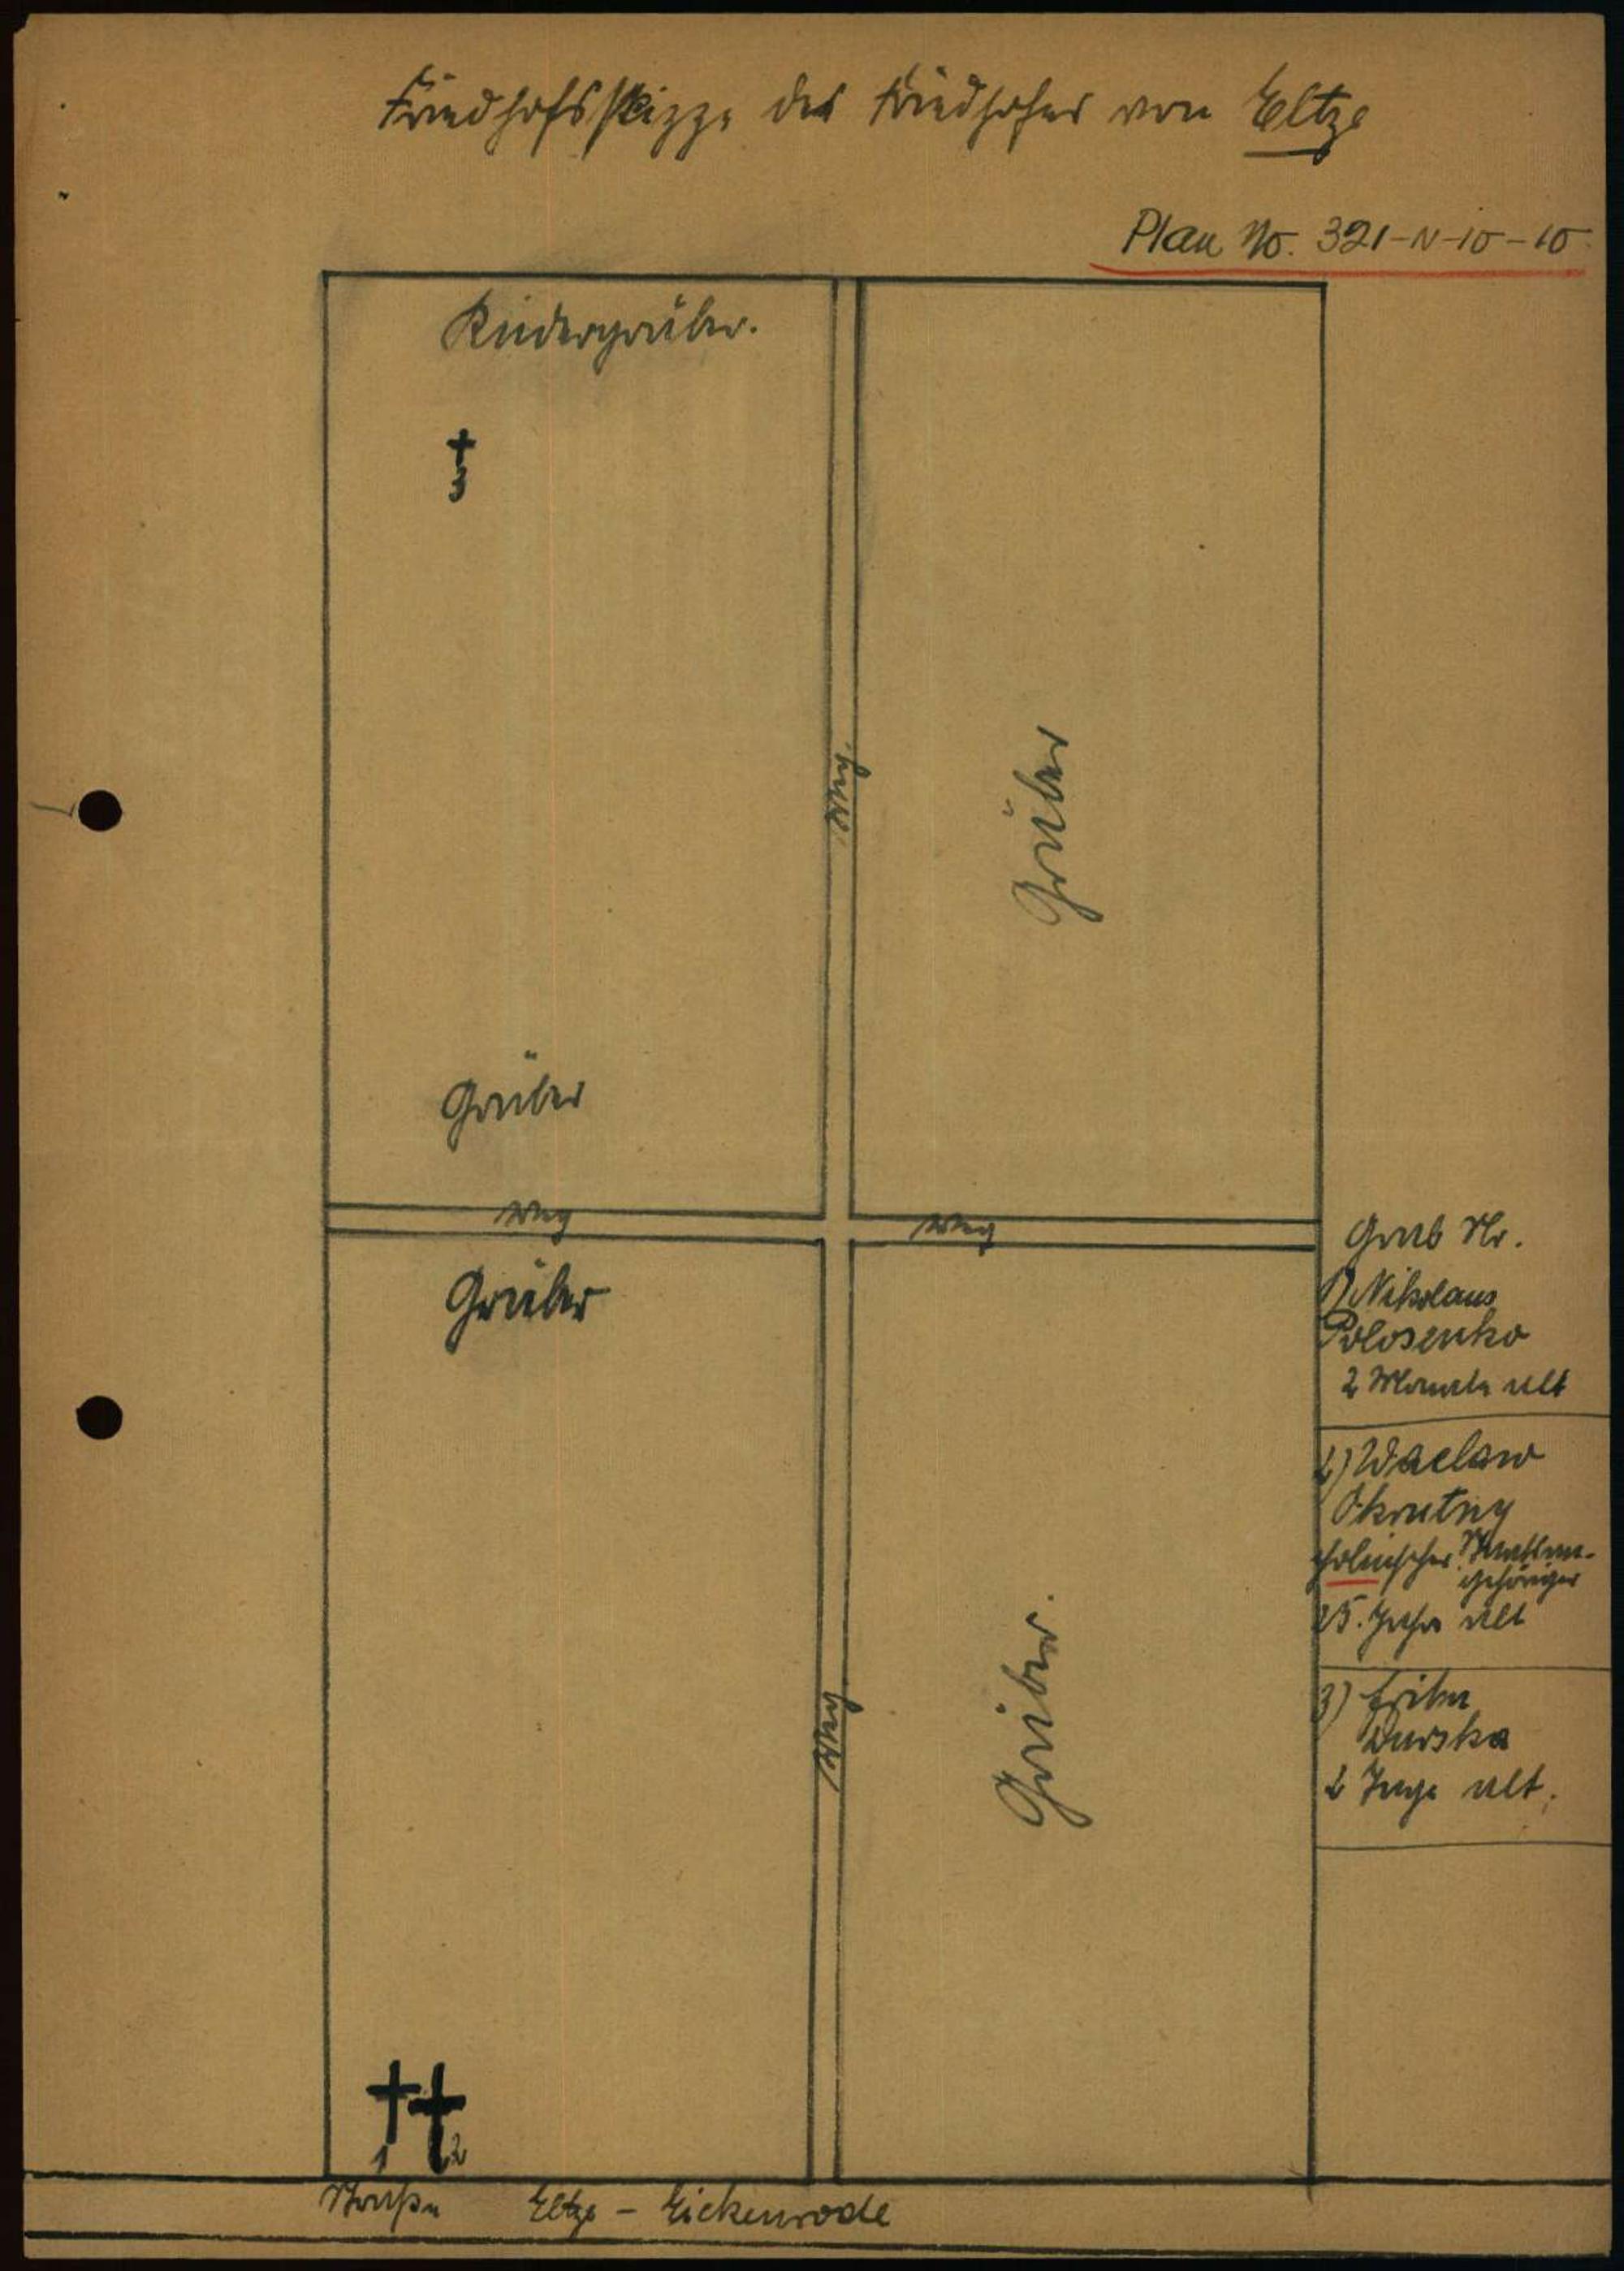 Friedhofsskizze des Friedhofes von Eltze
Plan No. 321-N-10-10.
Kindergräber.
3
Weg.
Gräber
Gräber
Weg
Weg
Gräber
Grab Nr.
1) Nikolaus
Polosenko
2 Monate alt
2) Waclaw
Okrutny
polnischer Staatsan-
gehöriger
25. Jahre alt
3)
Durska
2 Tage alt.
Gräber.
Weg
1
2
Straße Eltze - Eickenrode